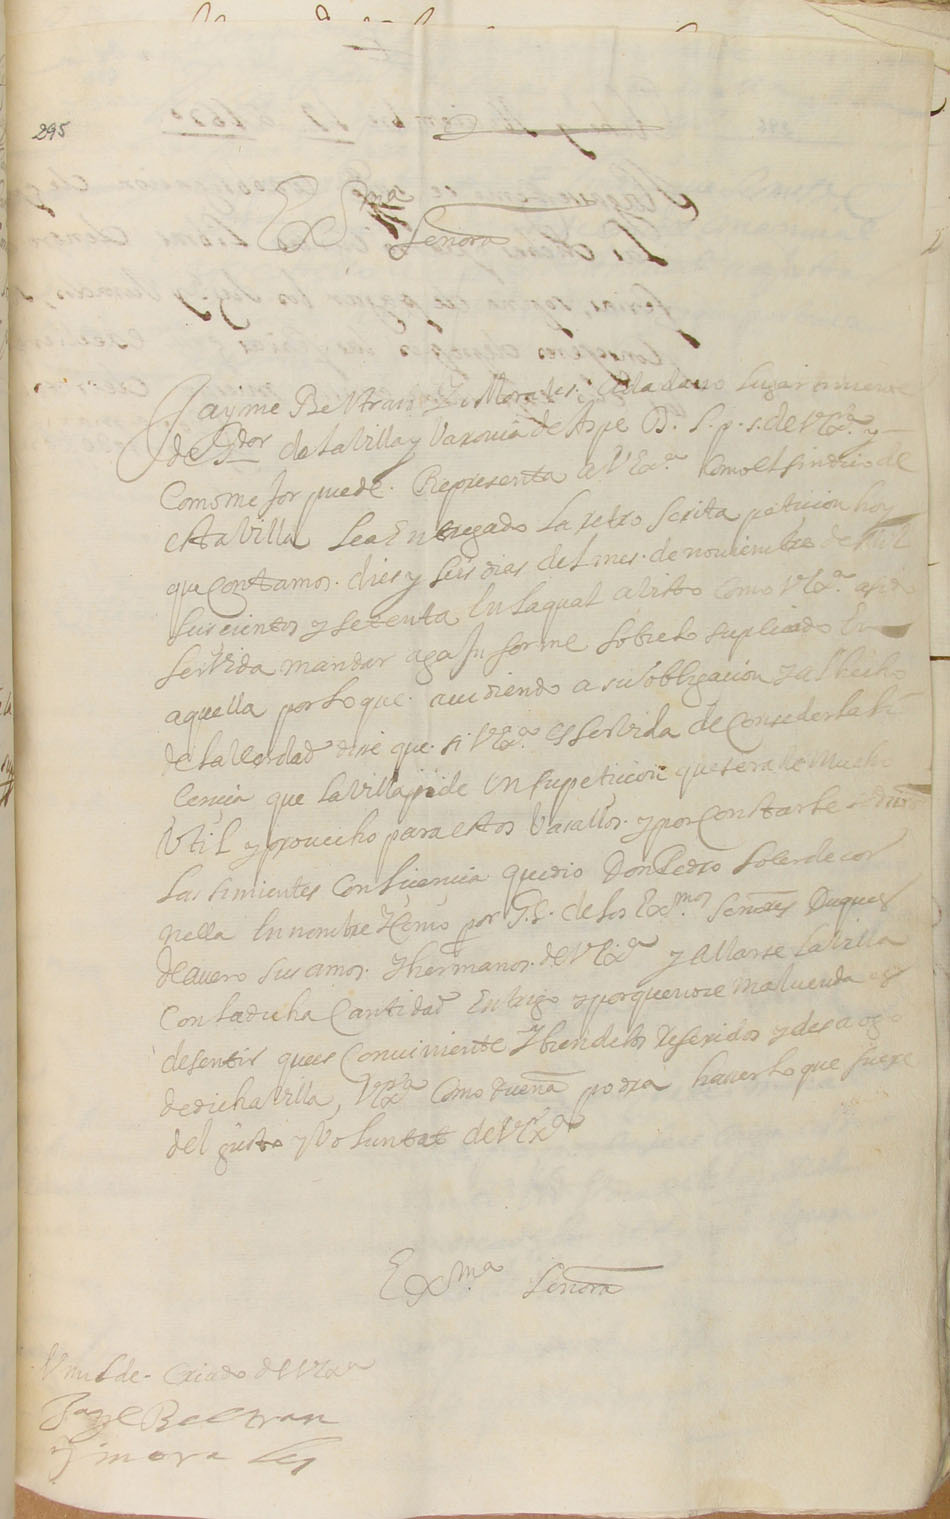 295
Ex.ma
Señora
Jayme Beltran y Morales, Ciudadano lugartiniente
de G.dor de la Villa y Varonia de Aspe B. L. p. s. de V.Ex.a y
Como mejor puede. Representa a V.Ex.a Como el sindico de
esta Villa Lea Entregado La retro Scrita peticion hoy
que Contamos. dies y seis dias del mes. de noviembre de Mil
suiscientos y setenta En la qual a visto Como V.Ex.a a sido
servida mandar aga Informe sobre lo suplicado En
aquella por lo que. acudiendo a su obligacion y al hecho
de la Verdad dise que. si V.Ex.a es servida de Conseder la li
Cencia que la Villa pide En su peticion que sera de Mucho
Util y provecho para estos Vasallos. y por Constarle
Las simientes Con licencia que dio Don Pedro Soler de cor
nella En nombre y Como por G.l. de los Ex.mos Señores Duques
de Avero sus amos. y hermanos. de V.Ex.a y allarse la Villa
Con la dicha Cantidad En trigo y porque no se malvenda es
de sentir que es Conviniente y bien de los Referidos y desaogo
de dicha Villa, V.Ex.a Como Dueña podra haver lo que fuere
del gusto y Voluntat de V.Ex.a
Ex.ma Señora
Umilde. Criado de V.Ex.a
Jayme Beltran
y morales